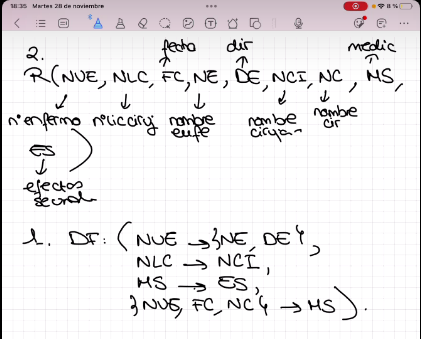 18:35 Martes 28 de noviembre
8 %
fecha dir medic
2.
R(NUE, NLC, FC, NE, DE, NCI, NC, MS,
nºenfermo nºlicciruj nombre nombre nombre
enfe cirujan cir
ES
efectos
secund
1. DF: ( NUE → {NE, DE},
NLC → NCI,
MS → ES,
{NUE, FC, NC} → MS ).